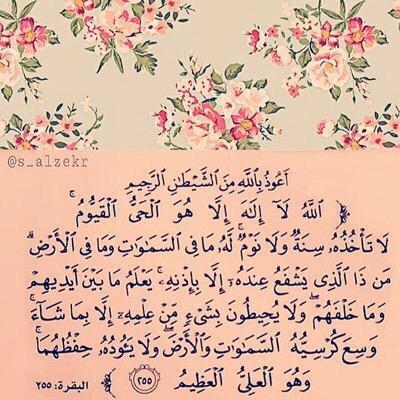 @s_alzekr
أَعُوذُ بِاللَّهِ مِنَ الشَّيْطَانِ الرَّجِيمِ
اللَّهُ لَآ إِلَٰهَ إِلَّا هُوَ الْحَىُّ الْقَيُّومُ ۚ
لَا تَأْخُذُهُۥ سِنَةٌ وَلَا نَوْمٌ ۚ لَّهُۥ مَا فِى السَّمَٰوَٰتِ وَمَا فِى الْأَرْضِ ۗ
مَن ذَا الَّذِى يَشْفَعُ عِندَهُۥٓ إِلَّا بِإِذْنِهِۦ ۚ يَعْلَمُ مَا بَيْنَ أَيْدِيهِمْ
وَمَا خَلْفَهُمْ ۖ وَلَا يُحِيطُونَ بِشَىْءٍ مِّنْ عِلْمِهِۦٓ إِلَّا بِمَا شَآءَ ۚ
وَسِعَ كُرْسِيُّهُ السَّمَٰوَٰتِ وَالْأَرْضَ ۖ وَلَا يَـُٔودُهُۥ حِفْظُهُمَا ۚ
وَهُوَ الْعَلِىُّ الْعَظِيمُ ٢٥٥ البقرة: ٢٥٥